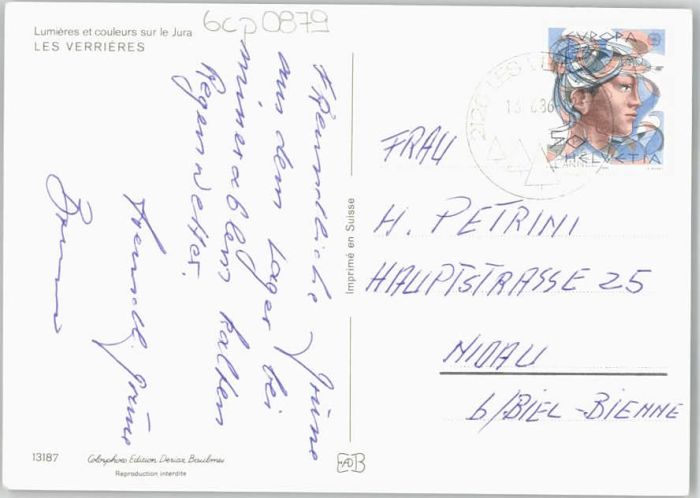 6cp0879
Lumières et couleurs sur le Jura
LES VERRIÈRES
Freundliche Grüsse
aus dem Lager bei
miserablem kalten
Regenwetter.
Freundl. Grüsse
EUROPA
50
HELVETIA
FRAU
H. PETRINI
HAUPTSTRASSE 25
NIDAU
b/BIEL-BIENNE
Imprimé en Suisse
13187
Colorphoto Edition Deriaz Baulmes
Reproduction interdite